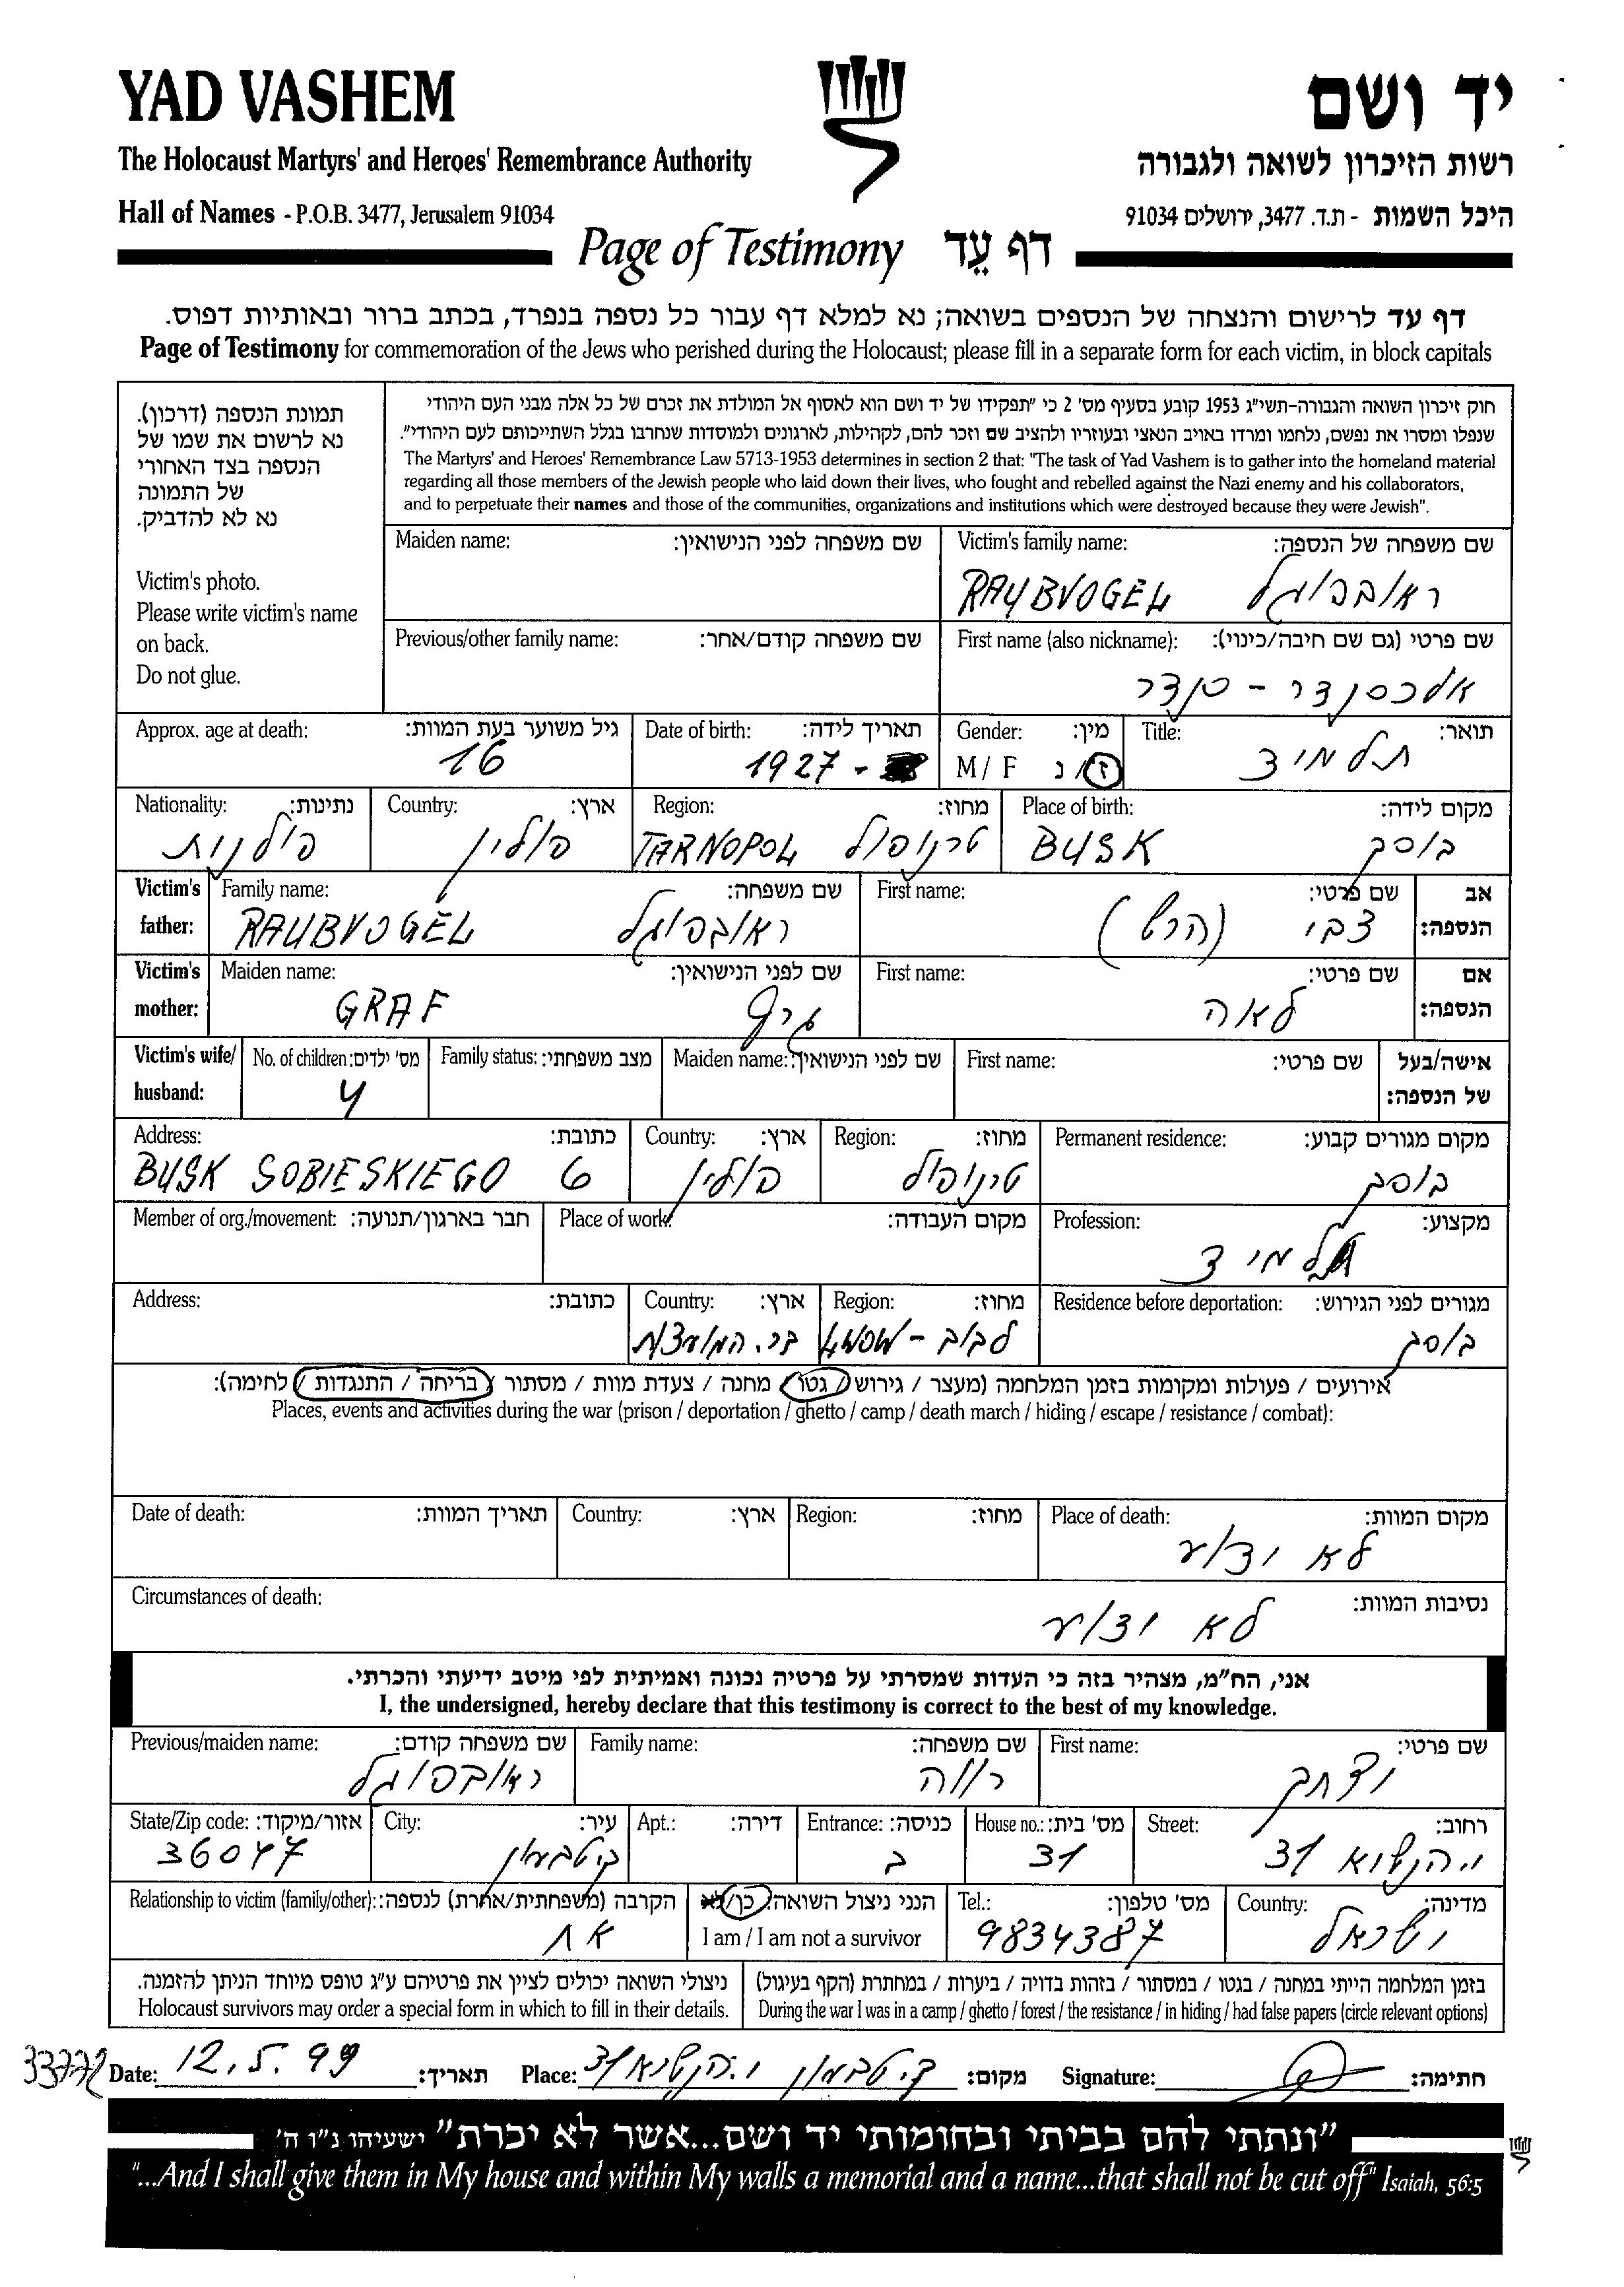 YAD VASHEM
יד ושם
The Holocaust Martyrs' and Heroes' Remembrance Authority
רשות הזיכרון לשואה ולגבורה
Hall of Names - P.O.B. 3477, Jerusalem 91034
היכל השמות - ת.ד. 3477, ירושלים 91034
Page of Testimony דף עֵד
דף עד לרישום והנצחה של הנספים בשואה; נא למלא דף עבור כל נספה בנפרד, בכתב ברור ובאותיות דפוס.
Page of Testimony for commemoration of the Jews who perished during the Holocaust; please fill in a separate form for each victim, in block capitals
תמונת הנספה (דרכון).
נא לרשום את שמו של
הנספה בצד האחורי
של התמונה
נא לא להדביק.
Victim's photo.
Please write victim's name
on back.
Do not glue.
חוק זיכרון השואה והגבורה-תשי"ג 1953 קובע בסעיף מס' 2 כי "תפקידו של יד ושם הוא לאסוף אל המולדת את זכרם של כל אלה מבני העם היהודי
שנפלו ומסרו את נפשם, נלחמו ומרדו באויב הנאצי ובעוזריו ולהציב שם וזכר להם, לקהילות, לארגונים ולמוסדות שנחרבו בגלל השתייכותם לעם היהודי".
The Martyrs' and Heroes' Remembrance Law 5713-1953 determines in section 2 that: "The task of Yad Vashem is to gather into the homeland material
regarding all those members of the Jewish people who laid down their lives, who fought and rebelled against the Nazi enemy and his collaborators,
and to perpetuate their names and those of the communities, organizations and institutions which were destroyed because they were Jewish".
Maiden name: שם משפחה לפני הנישואין: Victim's family name: שם משפחה של הנספה:
RAUBVOGEL ראובפוגל
Previous/other family name: שם משפחה קודם/אחר: First name (also nickname): שם פרטי (גם שם חיבה/כינוי):
אלכסנדר - סנדר
Approx. age at death: גיל משוער בעת המוות: Date of birth: תאריך לידה: Gender: מין: Title: תואר:
16 1927 - M / F ז / נ תלמיד
Nationality: נתינות: Country: ארץ: Region: מחוז: Place of birth: מקום לידה:
פולנית פולין TARNOPOL טרנופול BUSK בוסק
Victim's father: Family name: שם משפחה: First name: שם פרטי: אב הנספה:
RAUBVOGEL ראובפוגל צבי (הרש)
Victim's mother: Maiden name: שם לפני הנישואין: First name: שם פרטי: אם הנספה:
GRAF גרף לאה
Victim's wife/ husband: No. of children: מס' ילדים: Family status: מצב משפחתי: Maiden name: שם לפני הנישואין: First name: שם פרטי: אישה/בעל של הנספה:
4
Address: כתובת: Country: ארץ: Region: מחוז: Permanent residence: מקום מגורים קבוע:
BUSK SOBIESKIEGO 6 פולין טרנופול בוסק
Member of org./movement: חבר בארגון/תנועה: Place of work: מקום העבודה: Profession: מקצוע:
תלמיד
Address: כתובת: Country: ארץ: Region: מחוז: Residence before deportation: מגורים לפני הגירוש:
בר. המועצות לבוב - בוסק
אירועים / פעולות ומקומות בזמן המלחמה (מעצר / גירוש / גטו / מחנה / צעדת מוות / מסתור / בריחה / התנגדות / לחימה):
Places, events and activities during the war (prison / deportation / ghetto / camp / death march / hiding / escape / resistance / combat):
Date of death: תאריך המוות: Country: ארץ: Region: מחוז: Place of death: מקום המוות:
לא ידוע
Circumstances of death: נסיבות המוות:
לא ידוע
אני, הח"מ, מצהיר בזה כי העדות שמסרתי על פרטיה נכונה ואמיתית לפי מיטב ידיעתי והכרתי.
I, the undersigned, hereby declare that this testimony is correct to the best of my knowledge.
Previous/maiden name: שם משפחה קודם: Family name: שם משפחה: First name: שם פרטי:
ראובפוגל רווה יצחק
State/Zip code: אזור/מיקוד: City: עיר: Apt.: דירה: Entrance: כניסה: House no.: מס' בית: Street: רחוב:
36047 ק. טבעון ב 31 הנשיא 31
Relationship to victim (family/other): הקרבה (משפחתית/אחרת) לנספה: הנני ניצול השואה: כן/לא Tel.: מס' טלפון: Country: מדינה:
אח I am / I am not a survivor 9834387 ישראל
ניצולי השואה יכולים לציין את פרטיהם ע"ג טופס מיוחד הניתן להזמנה. בזמן המלחמה הייתי במחנה / בגטו / במסתור / בזהות בדויה / ביערות / במחתרת (הקף בעיגול)
Holocaust survivors may order a special form in which to fill in their details. During the war I was in a camp / ghetto / forest / the resistance / in hiding / had false papers (circle relevant options)
Date: 12.5.99 תאריך: Place: ק. טבעון הנשיא 31 מקום: Signature: חתימה:
"ונתתי להם בביתי ובחומותי יד ושם...אשר לא יכרת" ישעיהו נ"ו ה'
"...And I shall give them in My house and within My walls a memorial and a name...that shall not be cut off" Isaiah, 56:5